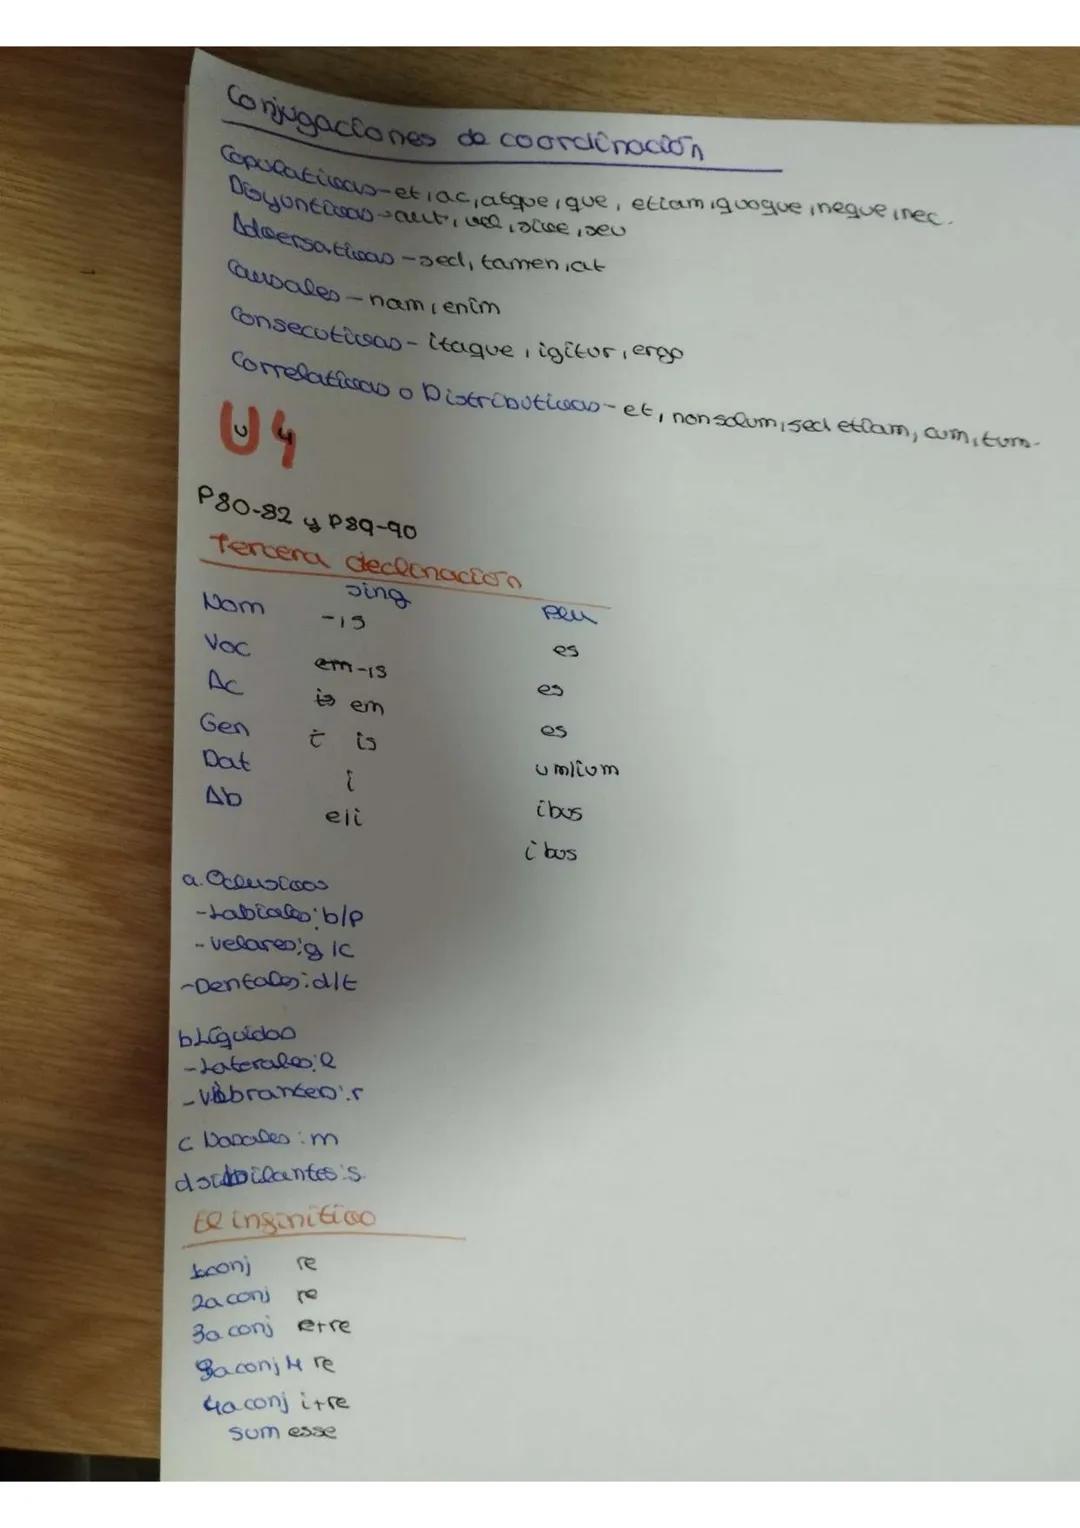 Conjugaciones de coordinación
Copulativas-et, ac, atque, que, etiam, quoque, neque, nec.
Disyuntivas-aut, vel, sive, seu
Adversativas-sed, tamen, at
Causales-nam, enim
Consecutivas-itaque, igitur, ergo
Correlativas o Distributivas-et, non solum, sed etiam, cum, tum-
U4
P80-82 y P89-90
Tercera declinación
sing plu
Nom -is es
Voc em-is es
Ac is em es
Gen i is um/ium
Dat i ibus
Ab e/i ibus
a. Oclusivas
-Labiales: b/p
-velares: g/c
-Dentales: d/t
b Líquidas
-Laterales: l
-Vibrantes: r
c Nasales: m
d sibilantes: s.
El infinitivo
1conj re
2a conj re
3a conj e+re
3a conj re
4a conj i+re
sum esse